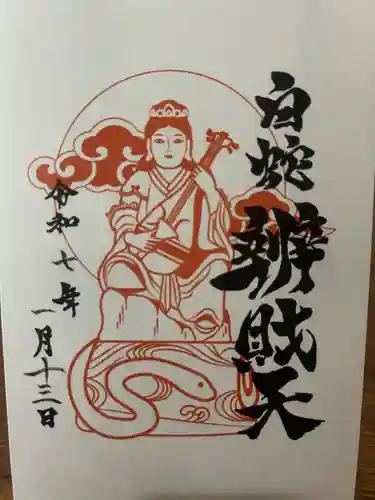 白蛇辨財天
令和七年
一月十三日